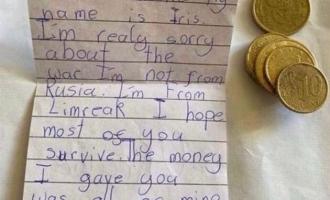 name is Iris
I'm realy sorry
about the
war I'm not from
Rusia. I'm From
Limreak I hope
most of you
survive. The money
I gave you
was all of mine
10